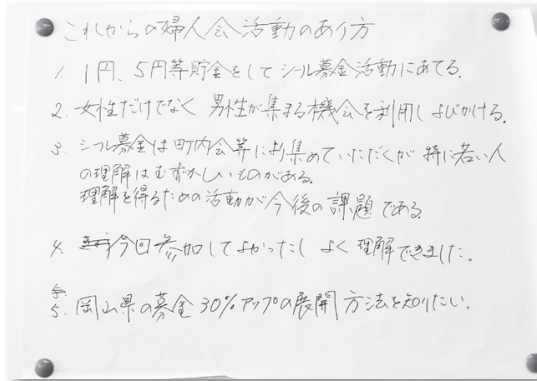 これからの婦人会活動のあり方
1. 1円、5円等貯金をしてシール募金活動にあてる。
2. 女性だけでなく 男性が集まる機会を利用しよびかける。
3. シール募金は町内会等により集めていただくが 特に若い人
の理解はむずかしいものがある。
理解を得るための活動が今後の課題である
4. 今回参加してよかったし よく理解できました。
5. 岡山県の募金30%アップの展開方法を知りたい。